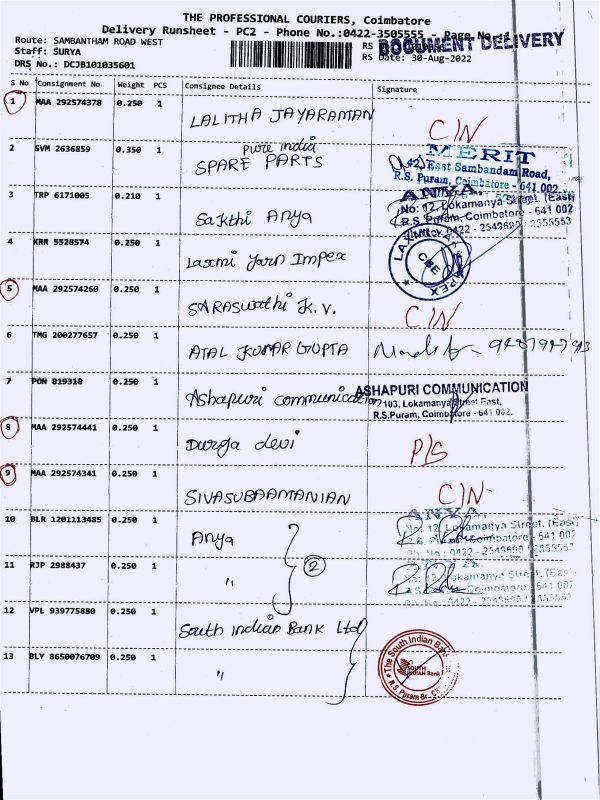 THE PROFESSIONAL COURIERS, Coimbatore
Delivery Runsheet - PC2 - Phone No.:0422-3505555 - Page No.:1
Route: SAMBANTHAM ROAD WEST
DOCUMENT DELIVERY
Staff: SURYA
RS Date: 30-Aug-2022
DRS No.: DCJB101035601
S No Consignment No Weight PCS Consignee Details Signature
1 MAA 292574378 0.250 1 LALITHA JAYARAMAN C/N
2 SVM 2636859 0.350 1 pure india
SPARE PARTS
MERIT
42, East Sambandam Road,
R.S. Puram, Coimbatore - 641 002
3 TRP 6171005 0.210 1 Sakthi Anya
ANYA
No: 12, Lokamanya Street, (East)
R.S. Puram, Coimbatore - 641 002
0422 - 2549690
4 KRR 5528574 0.250 1 Laxmi Yarn Impex
LAXMI APEX
CBE
5 MAA 292574260 0.250 1 SARASwathi K.V. C/N
6 TMG 200277657 0.250 1 ATAL KUMAR GUPTA
7 PON 819318 0.250 1 Ashapuri communication
ASHAPURI COMMUNICATION
103, Lokamanya Street East,
R.S.Puram, Coimbatore - 641 002.
8 MAA 292574441 0.250 1 Durga devi P/S
9 MAA 292574341 0.250 1 SIVASUBRAMANIAN C/N
10 BLR 1201113485 0.250 1 Anya
ANYA
No: 12, Lokamanya Street, (East)
R.S. Puram, Coimbatore - 641 002
Ph No : 0422 - 2549690
11 RJP 2988437 0.250 1 "
2
Lokamanya Street, (East)
Coimbatore - 641 002
Ph No : 0422 - 2549690
12 VPL 939775880 0.250 1 South indian Bank Ltd
13 BLY 8650076709 0.250 1 "
The South Indian Bank
SOUTH
INDIAN Bank
R.S. Puram Br.